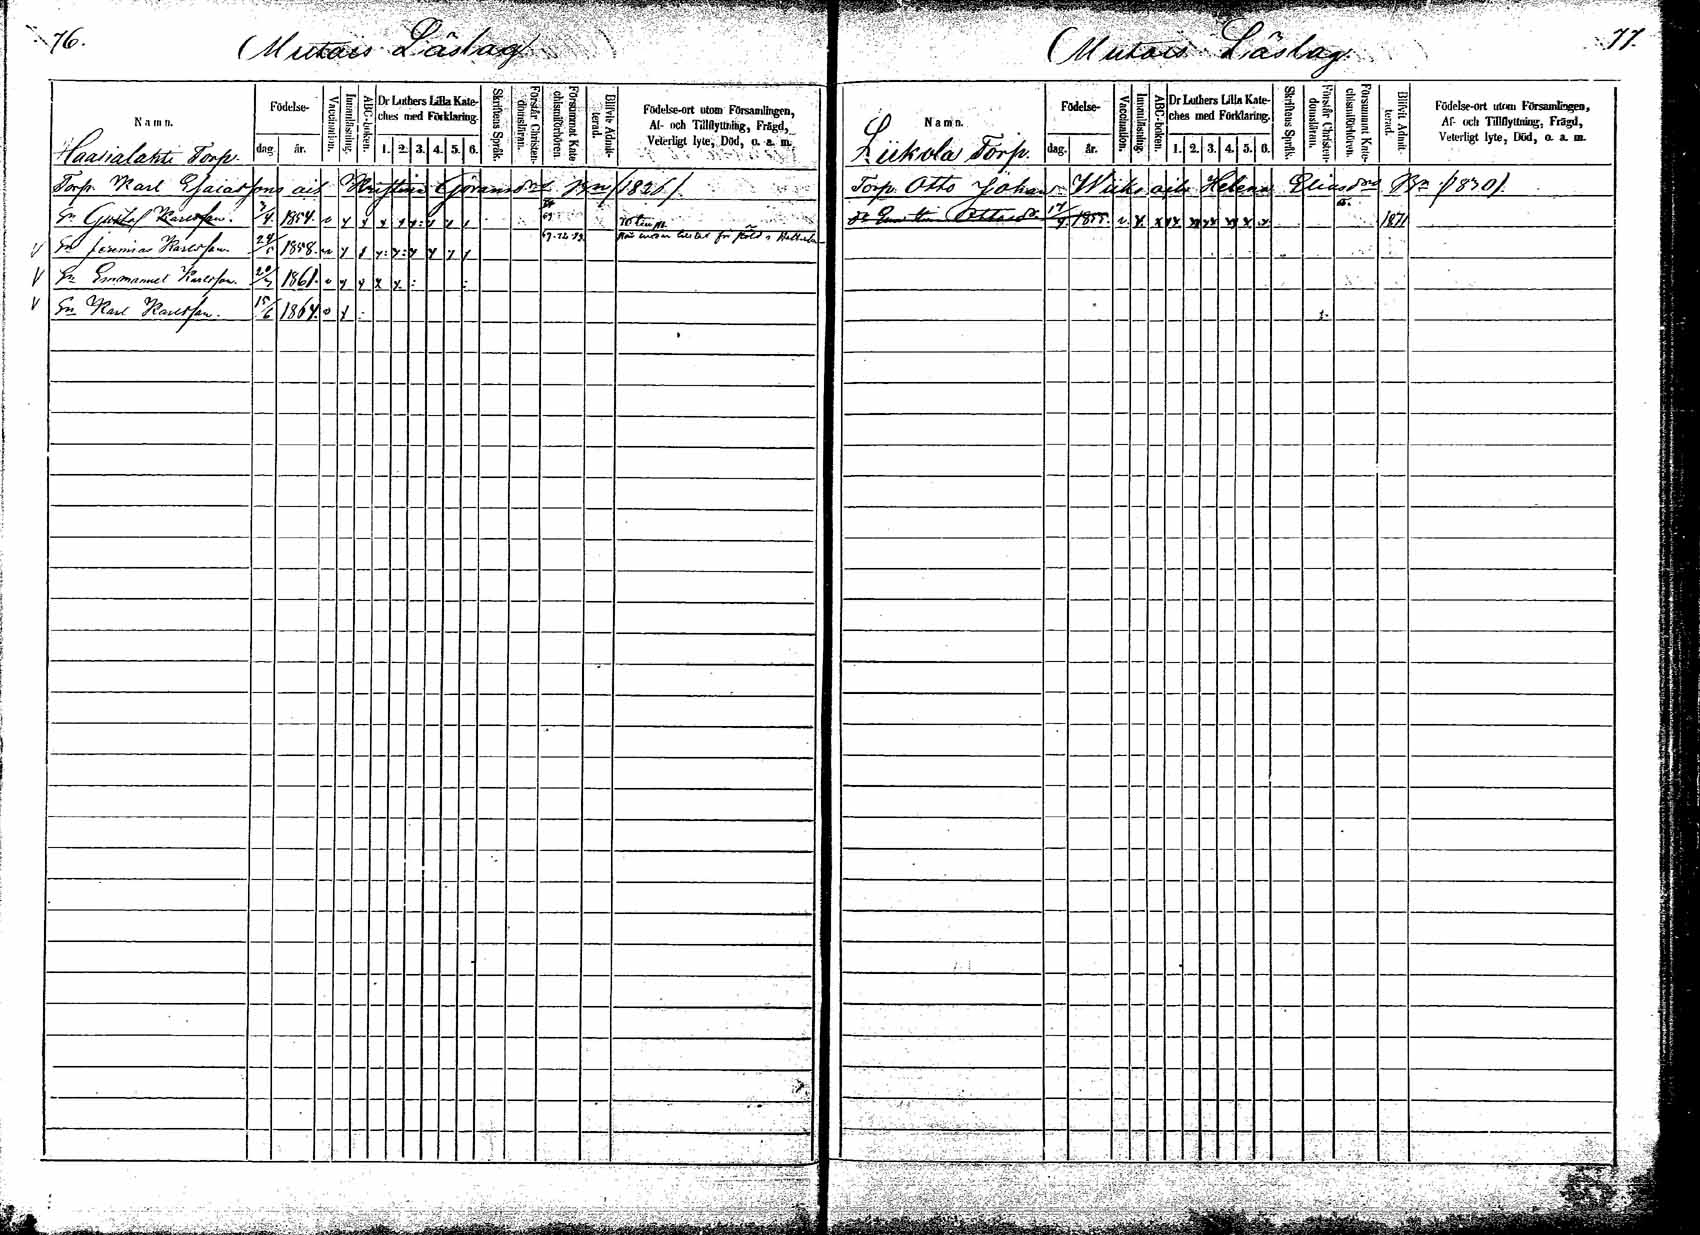 76.
Mutais Läslag
Namn.
Födelse-
dag.
år.
Vaccination.
Innanläsning.
ABC-boken.
Dr Luthers Lilla Kate-
ches med Förklaring.
1. 2. 3. 4. 5. 6.
Skriftens Språk.
Förstår Christen-
domsläran.
Försummat Kate-
chismiförhören.
Blifvit Admit-
terad.
Födelse-ort utom Församlingen,
Af- och Tillflyttning, Frägd,
Veterligt lyte, Död, o. a. m.
Haasialahti Torp.
Torp. Karl Esaiasson's Kristina Göransdr 1826
Sn Gustaf Karlsson. 3/4 1854.
Sn Jeremias Karlsson. 1858.
Sn Emmanuel Karlsson. 1861.
Sn Karl Karlsson. 15/6 1864.
77.
Mutais Läslag.
Namn.
Födelse-
dag.
år.
Vaccination.
Innanläsning.
ABC-boken.
Dr Luthers Lilla Kate-
ches med Förklaring.
1. 2. 3. 4. 5. 6.
Skriftens Språk.
Förstår Christen-
domsläran.
Försummat Kate-
chismiförhören.
Blifvit Admit-
terad.
Födelse-ort utom Församlingen,
Af- och Tillflyttning, Frägd,
Veterligt lyte, Död, o. a. m.
Liikola Torp.
Torp. Otto Johan Wiiks Helena Eliasdr 1830
1855. 1871